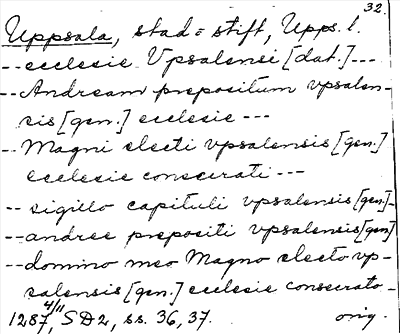 32.
Uppsala, stad o stift, Upps. l.
-- ecclesie Vpsalensi [dat.] ---
-- Andream prepositum vpsalen-
sis [gen.] ecclesie ---
-- Magni electi vpsalensis [gen.]
ecclesie consecrati ---
-- sigillo capituli vpsalensis [gen.] -
-- andree prepositi vpsalensis [gen]
-- domino meo Magno electo vp-
salensis [gen.] ecclesie consecrato -
4/11
1287, SD2, ss. 36, 37. orig.